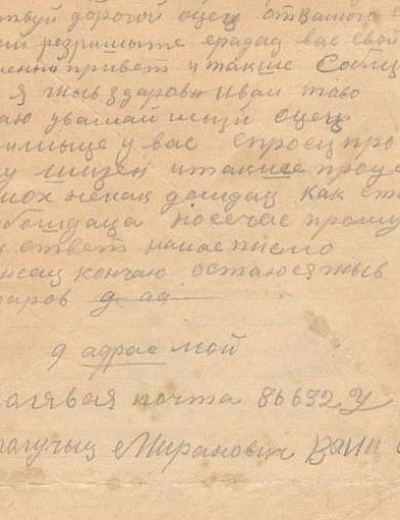 твуй дорогой оцец отвашого с
ни розришыте ерадац вас свой
менни привет и также собщ
я жыв здаров и вам таво
аю уважаймыий оцец
илмыще у вас спроец про
у жизен итакже проце
мох некак дождац как ст
обождаца но сечас прошу
ответ нанаеписмо
нсац кончаю остаюся жыв
даров
д адрас мой
лагявая почта 86632 У
лагучыц Миранович Ваин